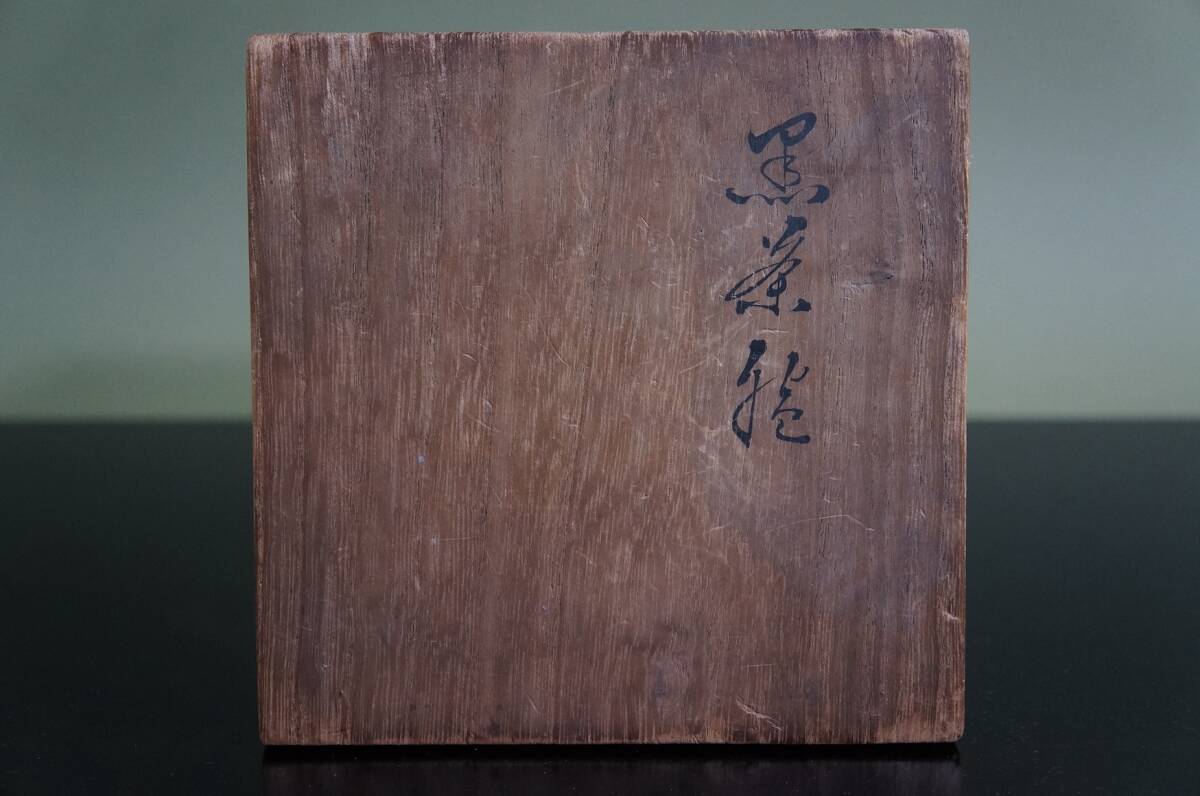 黒茶碗